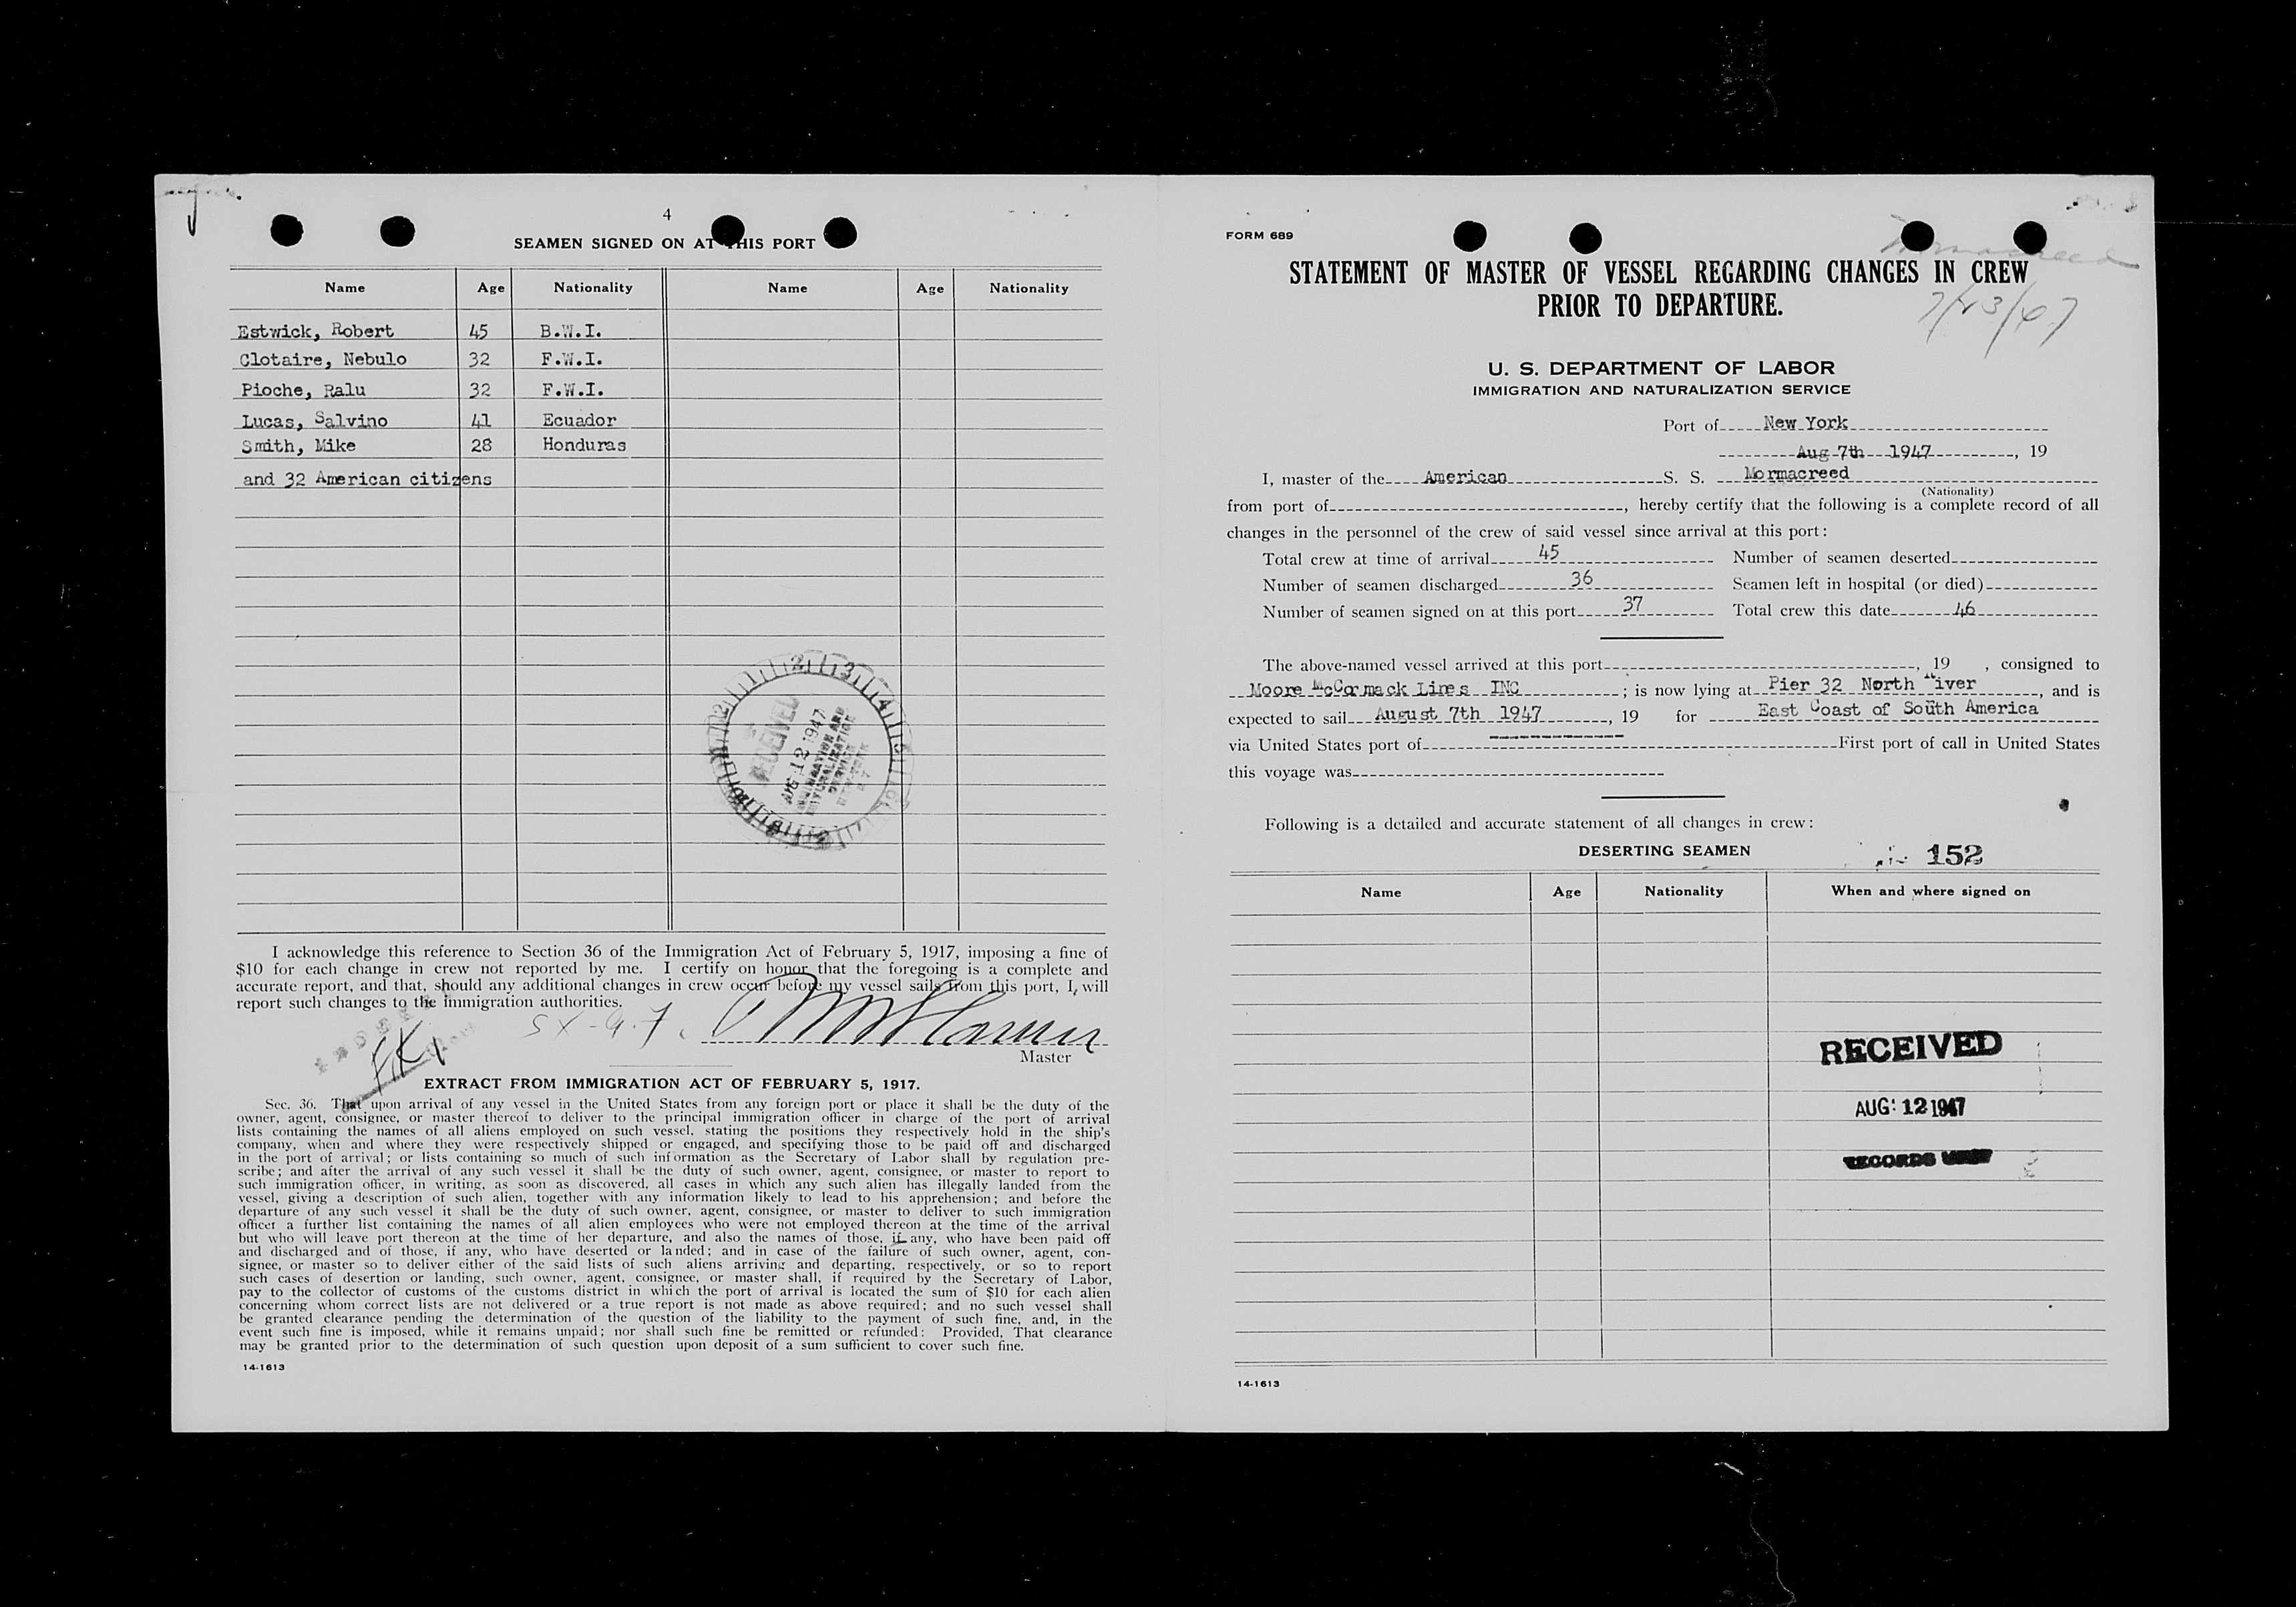 4
SEAMEN SIGNED ON AT THIS PORT
Name Age Nationality Name Age Nationality
Estwick, Robert 45 B.W.I.
Clotaire, Nebulo 32 F.W.I.
Pioche, Ralu 32 F.W.I.
Lucas, Salvino 41 Ecuador
Smith, Mike 28 Honduras
and 32 American citizens
RECEIVED
AUG 12 1947
IMMIGRATION AND
NATURALIZATION
SERVICE
I acknowledge this reference to Section 36 of the Immigration Act of February 5, 1917, imposing a fine of
$10 for each change in crew not reported by me. I certify on honor that the foregoing is a complete and
accurate report, and that, should any additional changes in crew occur before my vessel sails from this port, I will
report such changes to the immigration authorities.
Master
EXTRACT FROM IMMIGRATION ACT OF FEBRUARY 5, 1917.
Sec. 36. That upon arrival of any vessel in the United States from any foreign port or place it shall be the duty of the
owner, agent, consignee, or master thereof to deliver to the principal immigration officer in charge of the port of arrival
lists containing the names of all aliens employed on such vessel, stating the positions they respectively hold in the ship's
company, when and where they were respectively shipped or engaged, and specifying those to be paid off and discharged
in the port of arrival; or lists containing so much of such information as the Secretary of Labor shall by regulation pre-
scribe; and after the arrival of any such vessel it shall be the duty of such owner, agent, consignee, or master to report to
such immigration officer, in writing, as soon as discovered, all cases in which any such alien has illegally landed from the
vessel, giving a description of such alien, together with any information likely to lead to his apprehension; and before the
departure of any such vessel it shall be the duty of such owner, agent, consignee, or master to deliver to such immigration
officer a further list containing the names of all alien employees who were not employed thereon at the time of the arrival
but who will leave port thereon at the time of her departure, and also the names of those, if any, who have been paid off
and discharged and of those, if any, who have deserted or landed; and in case of the failure of such owner, agent, con-
signee, or master so to deliver either of the said lists of such aliens arriving and departing, respectively, or so to report
such cases of desertion or landing, such owner, agent, consignee, or master shall, if required by the Secretary of Labor,
pay to the collector of customs of the customs district in which the port of arrival is located the sum of $10 for each alien
concerning whom correct lists are not delivered or a true report is not made as above required; and no such vessel shall
be granted clearance pending the determination of the question of the liability to the payment of such fine, and, in the
event such fine is imposed, while it remains unpaid; nor shall such fine be remitted or refunded: Provided, That clearance
may be granted prior to the determination of such question upon deposit of a sum sufficient to cover such fine.
14-1613
FORM 689
Mormacreed
STATEMENT OF MASTER OF VESSEL REGARDING CHANGES IN CREW
PRIOR TO DEPARTURE.
7/23/47
U. S. DEPARTMENT OF LABOR
IMMIGRATION AND NATURALIZATION SERVICE
Port of New York
Aug 7th 1947, 19
I, master of the American S. S. Mormacreed
(Nationality)
from port of , hereby certify that the following is a complete record of all
changes in the personnel of the crew of said vessel since arrival at this port:
Total crew at time of arrival 45 Number of seamen deserted
Number of seamen discharged 36 Seamen left in hospital (or died)
Number of seamen signed on at this port 37 Total crew this date 46
The above-named vessel arrived at this port , 19 , consigned to
Moore McCormack Lines INC ; is now lying at Pier 32 North River , and is
expected to sail August 7th 1947 , 19 for East Coast of South America
via United States port of First port of call in United States
this voyage was
Following is a detailed and accurate statement of all changes in crew:
DESERTING SEAMEN 152
Name Age Nationality When and where signed on
RECEIVED
AUG 12 1947
RECORDS
14-1613